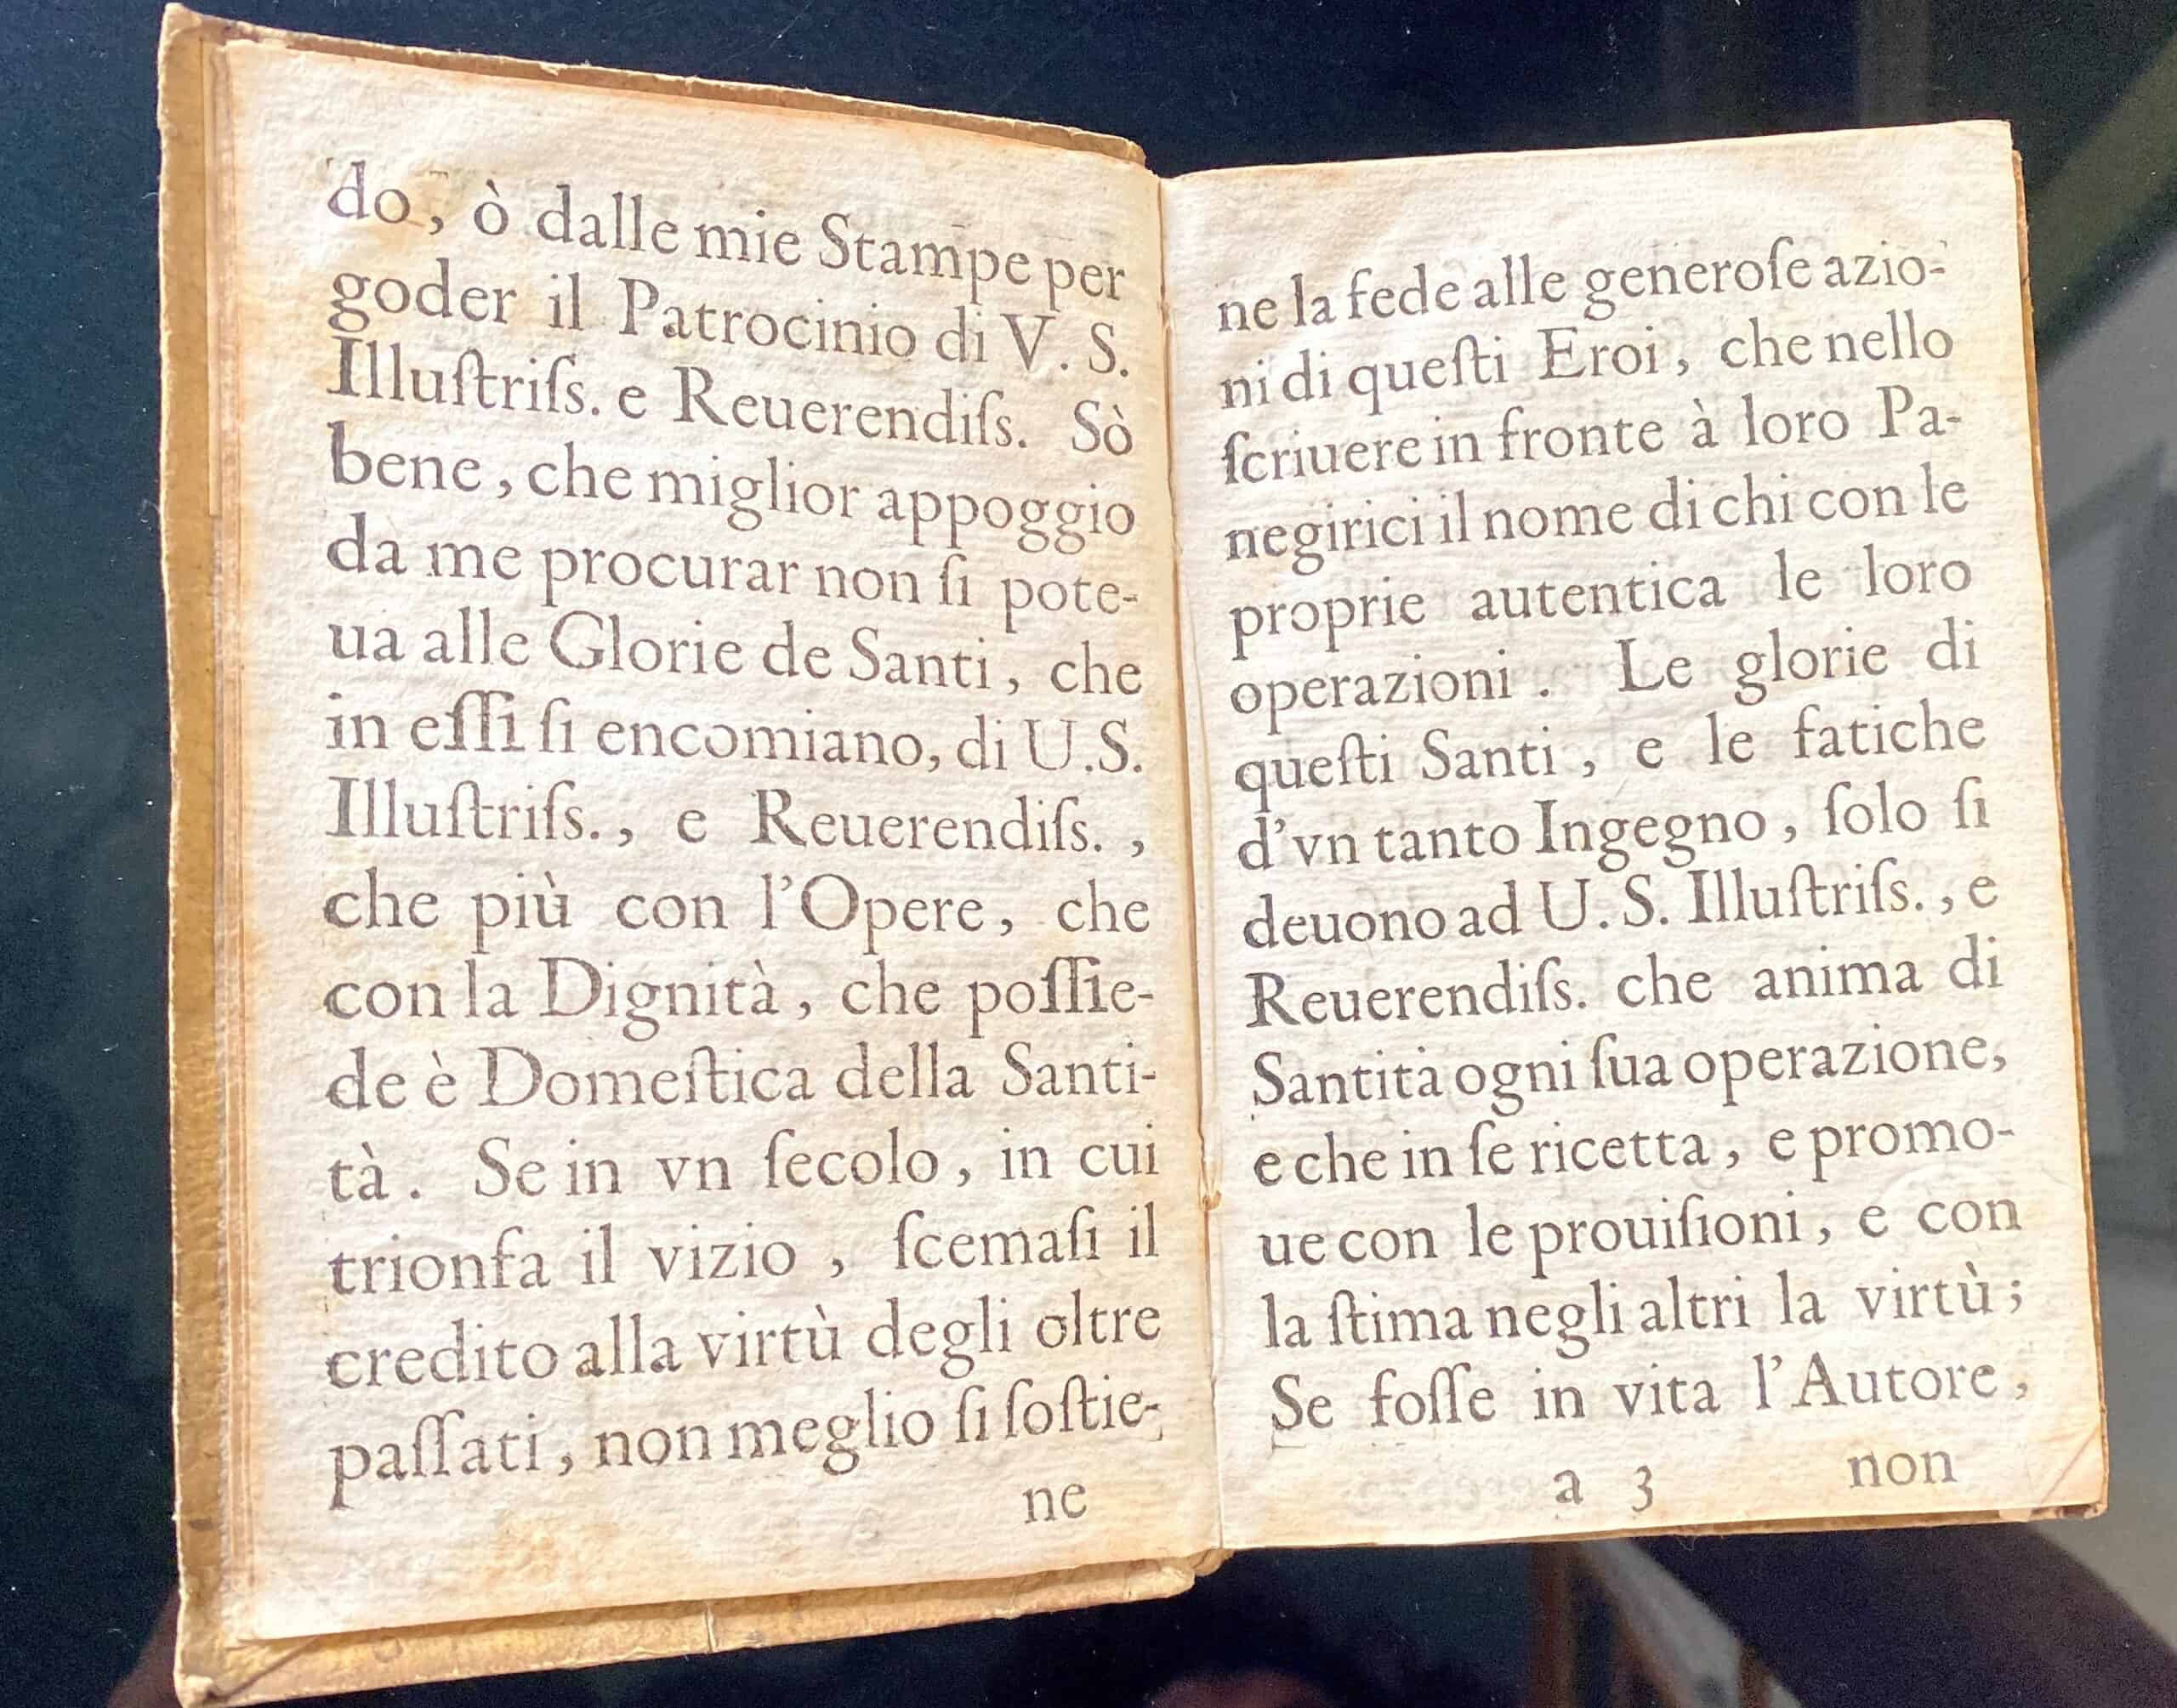 do, ò dalle mie Stampe per
goder il Patrocinio di V. S.
Illuſtriſs. e Reuerendiſs. Sò
bene, che miglior appoggio
da me procurar non ſi pote-
ua alle Glorie de Santi, che
in eſſi ſi encomiano, di U.S.
Illuſtriſs., e Reuerendiſs.,
che più con l'Opere, che
con la Dignità, che poſſie-
de è Domeſtica della Santi-
tà. Se in vn ſecolo, in cui
trionfa il vizio, ſcemaſi il
credito alla virtù degli oltre
paſſati, non meglio ſi ſoſtie-
ne
ne la fede alle generoſe azio-
ni di queſti Eroi, che nello
ſcriuere in fronte à loro Pa-
negirici il nome di chi con le
proprie autentica le loro
operazioni. Le glorie di
queſti Santi, e le fatiche
d'vn tanto Ingegno, ſolo ſi
deuono ad U. S. Illuſtriſs., e
Reuerendiſs. che anima di
Santità ogni ſua operazione,
e che in ſe ricetta, e promo-
ue con le prouiſioni, e con
la ſtima negli altri la virtù;
Se foſſe in vita l'Autore,
a 3 non